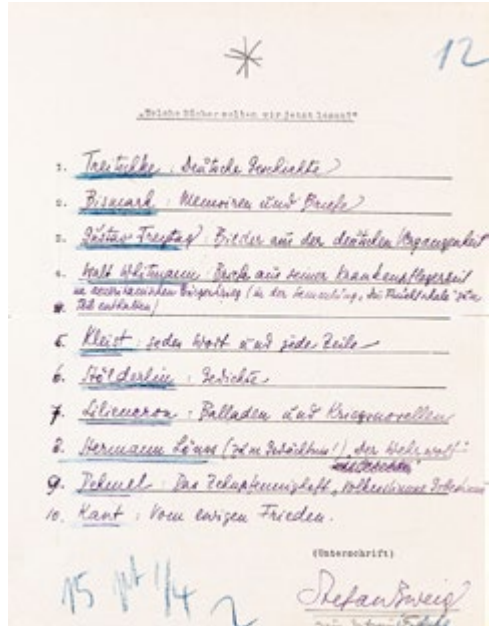 12
„Welche Bücher sollen wir jetzt lesen?"
1. Treitschke : Deutsche Geschichte
2. Bismark : Memoiren und Briefe
3. Gustav Freytag : Bilder aus der deutschen Vergangenheit
4. Walt Whitmann : Briefe aus seiner Krankenpflegerzeit
im amerikanischen Bürgerkrieg (in der Sammlung „Die Fruchtschale" zum
Teil enthalten)
5. Kleist : jedes Wort und jede Zeile
6. Hölderlin : Gedichte
7. Liliencron : Balladen und Kriegsnovellen
8. Hermann Löns (zum Gedächtnis!) „Der Wehrwolf"
9. Dehmel : Das Zehnpfennigheft „Volkesstimme
10. Kant : Vom ewigen Frieden.
(Unterschrift)
15 1/4
Stefan Zweig